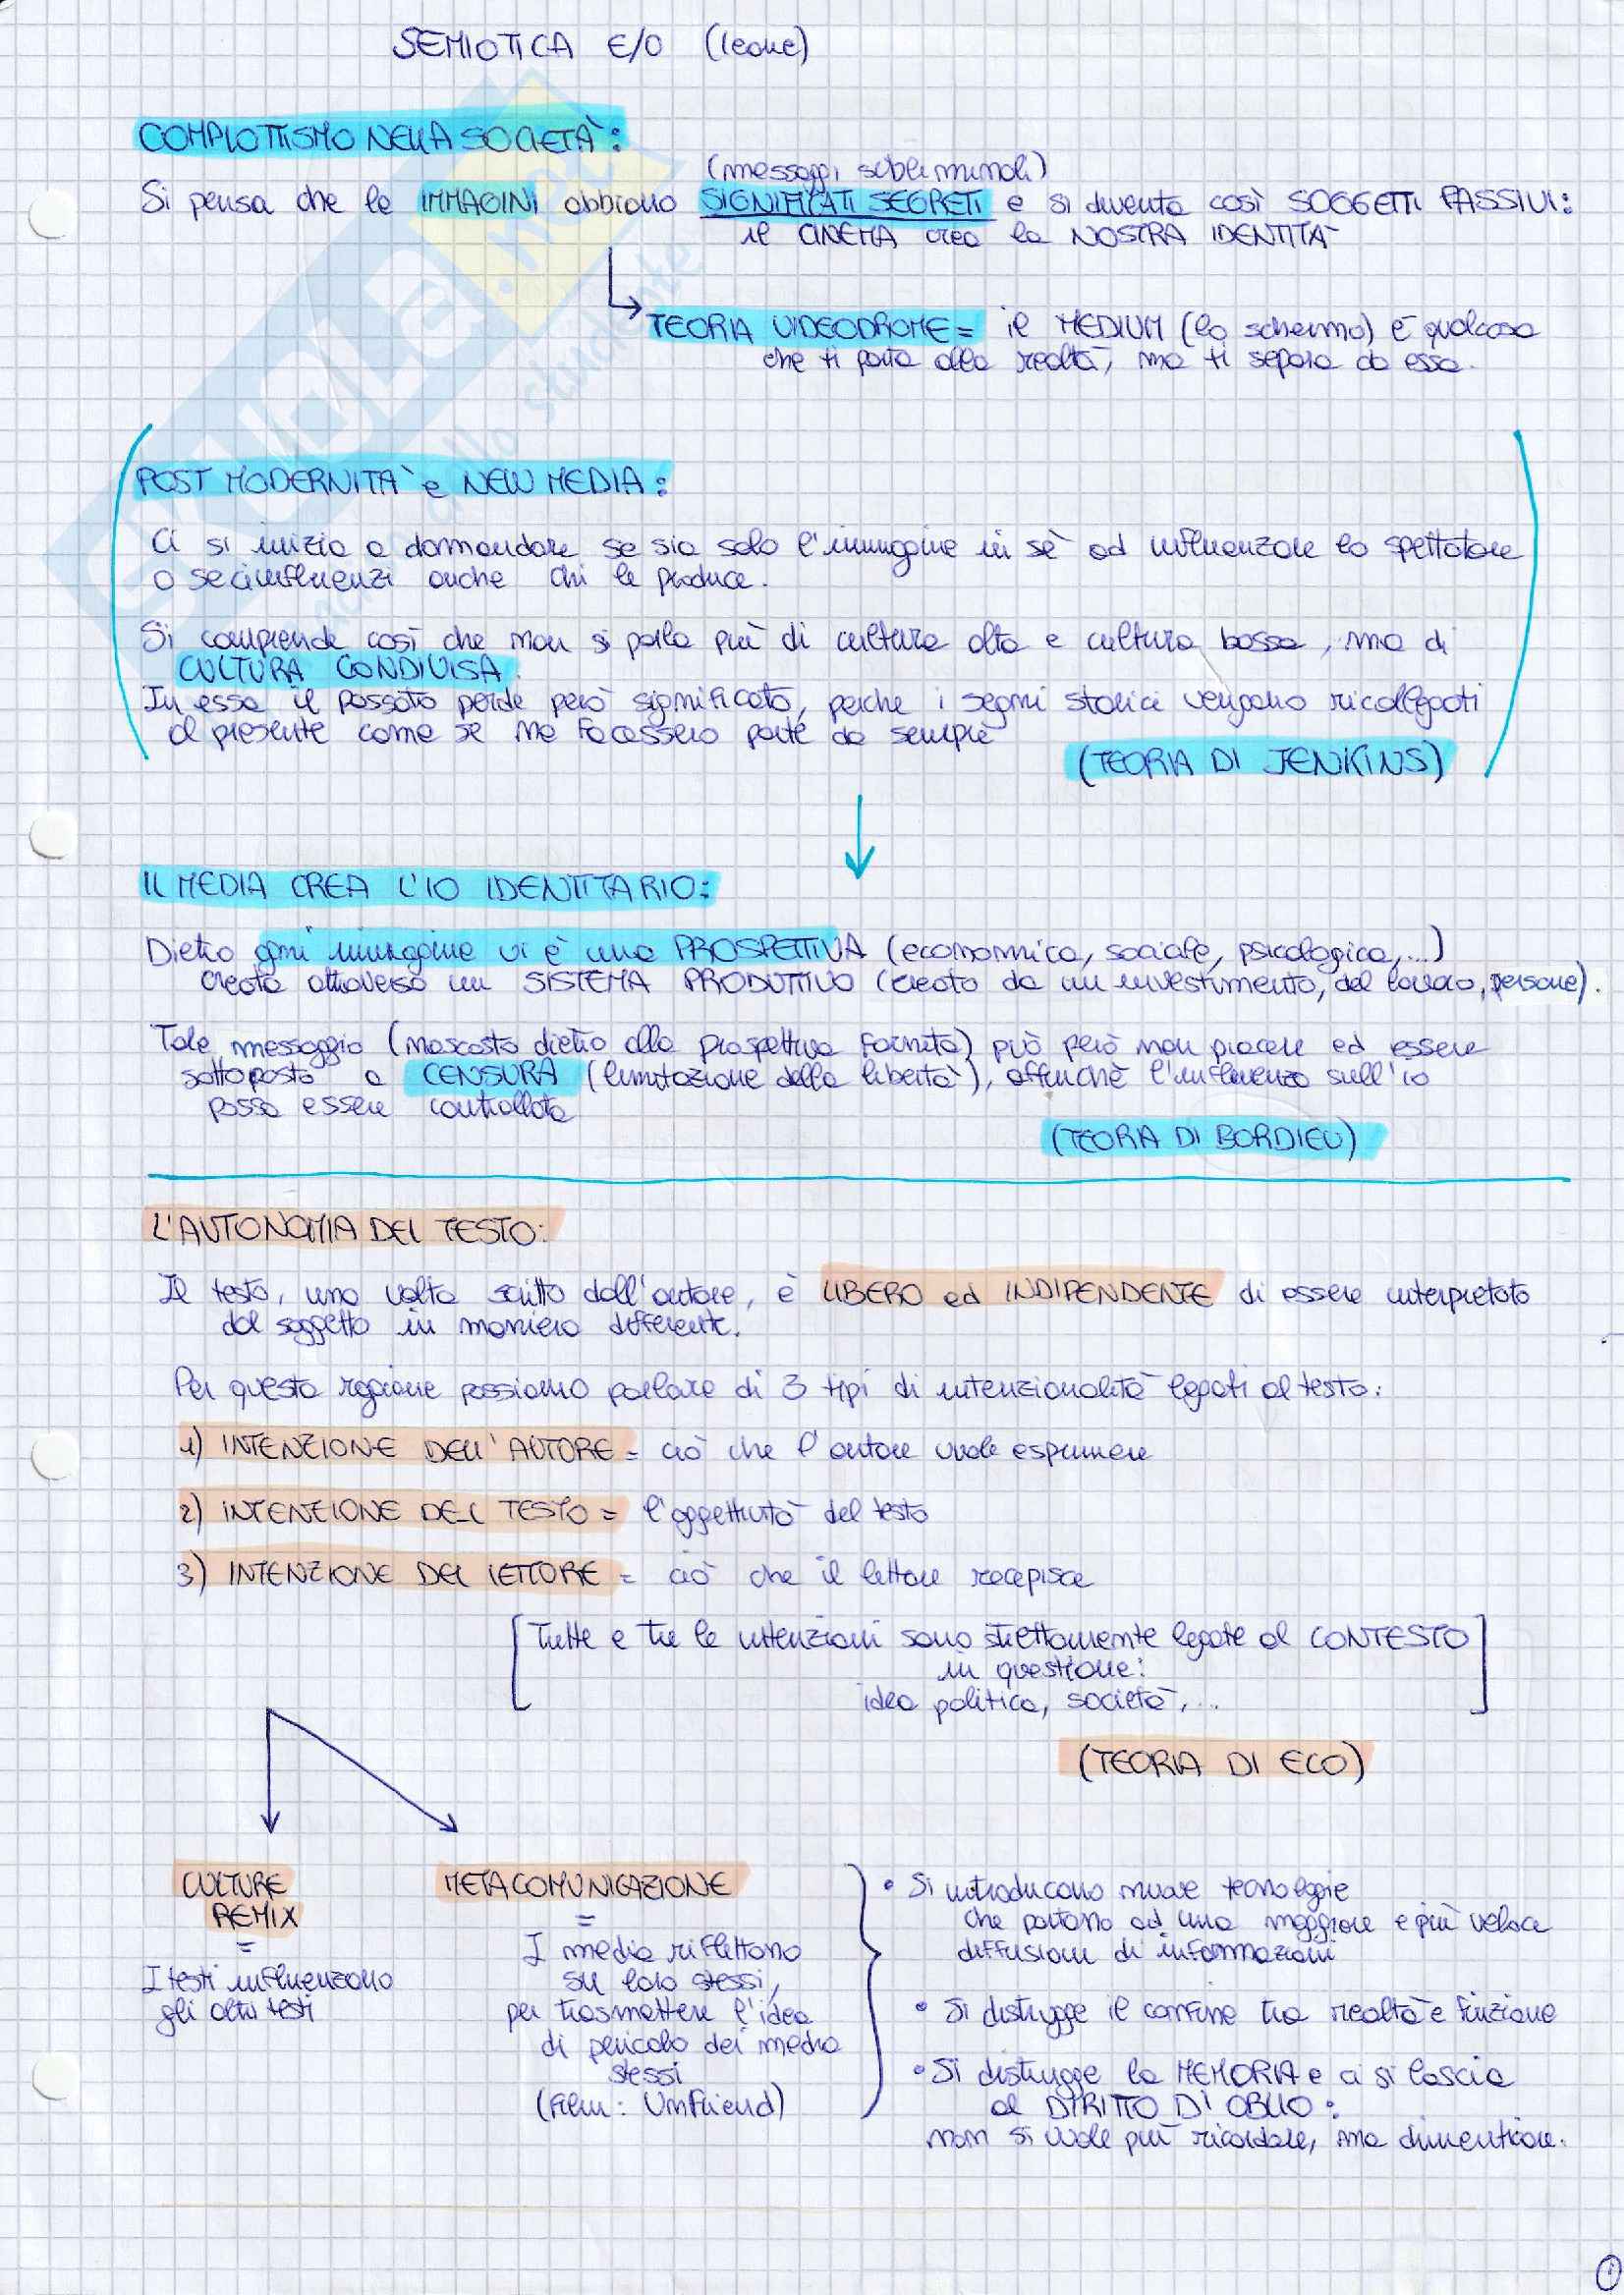 SEMIOTICA E/O (leone)
COMPLOTTISMO NELLA SOCIETÀ:
(messaggi subliminali)
Si pensa che le IMMAGINI abbiano SIGNIFICATI SEGRETI e si diventa così SOGGETTI PASSIVI:
il CINEMA crea la NOSTRA IDENTITÀ
TEORIA VIDEODROME = il MEDIUM (lo schermo) è qualcosa
che ti porta alla realtà, ma ti separa da essa.
POST MODERNITÀ e NEW MEDIA:
Ci si inizia a dommandare se sia solo l'immagine in sè ad influenzare lo spettatore
o se ci influenzi anche chi le produce.
Si comprende così che non si parla più di cultura alta e cultura bassa, ma di
CULTURA CONDIVISA.
In essa il passato perde però significato, perche i segni storici vengono ricollegati
al presente come se ne facessero parte da sempre
(TEORIA DI JENKINS)
IL MEDIA CREA L'IO IDENTITARIO:
Dietro ogni immagine vi è una PROSPETTIVA (economica, sociale, psicologica,...)
creata attraverso un SISTEMA PRODUTTIVO (creato da un investimento, del lavoro, persone).
Tale messaggio (nascosto dietro alla prospettiva fornita) può però non piacere ed essere
sottoposto a CENSURA (limitazione della libertà), affinchè l'influenza sull'io
possa essere controllata
(TEORIA DI BORDIEU)
L'AUTONOMIA DEL TESTO:
Il testo, una volta scritto dall'autore, è LIBERO ed INDIPENDENTE di essere interpretato
dal soggetto in maniera differente.
Per questa ragione possiamo parlare di 3 tipi di intenzionalità legati al testo:
1) INTENZIONE DELL'AUTORE = ciò che l'autore vuole esprimere
2) INTENZIONE DEL TESTO = l'oggettività del testo
3) INTENZIONE DEL LETTORE = ciò che il lettore recepisce
[Tutte e tre le intenzioni sono strettamente legate al CONTESTO]
in questione:
idea politica, società,...
(TEORIA DI ECO)
CULTURE
REMIX
=
I testi influenzano
gli altri testi
METACOMUNICAZIONE
=
I media riflettono
su loro stessi,
per trasmettere l'idea
di pericolo dei media
stessi
(film: Unfriend)
• Si introducono nuove tecnologie
che portano ad una maggiore e più veloce
diffusioni di informazioni
• Si distrugge il confine tra realtà e finzione
• Si distrugge la MEMORIA e ci si lascia
al DIRITTO DI OBLIO:
non si vuole più ricordare, ma dimenticare.
1
SKUOLA.net
dello studente